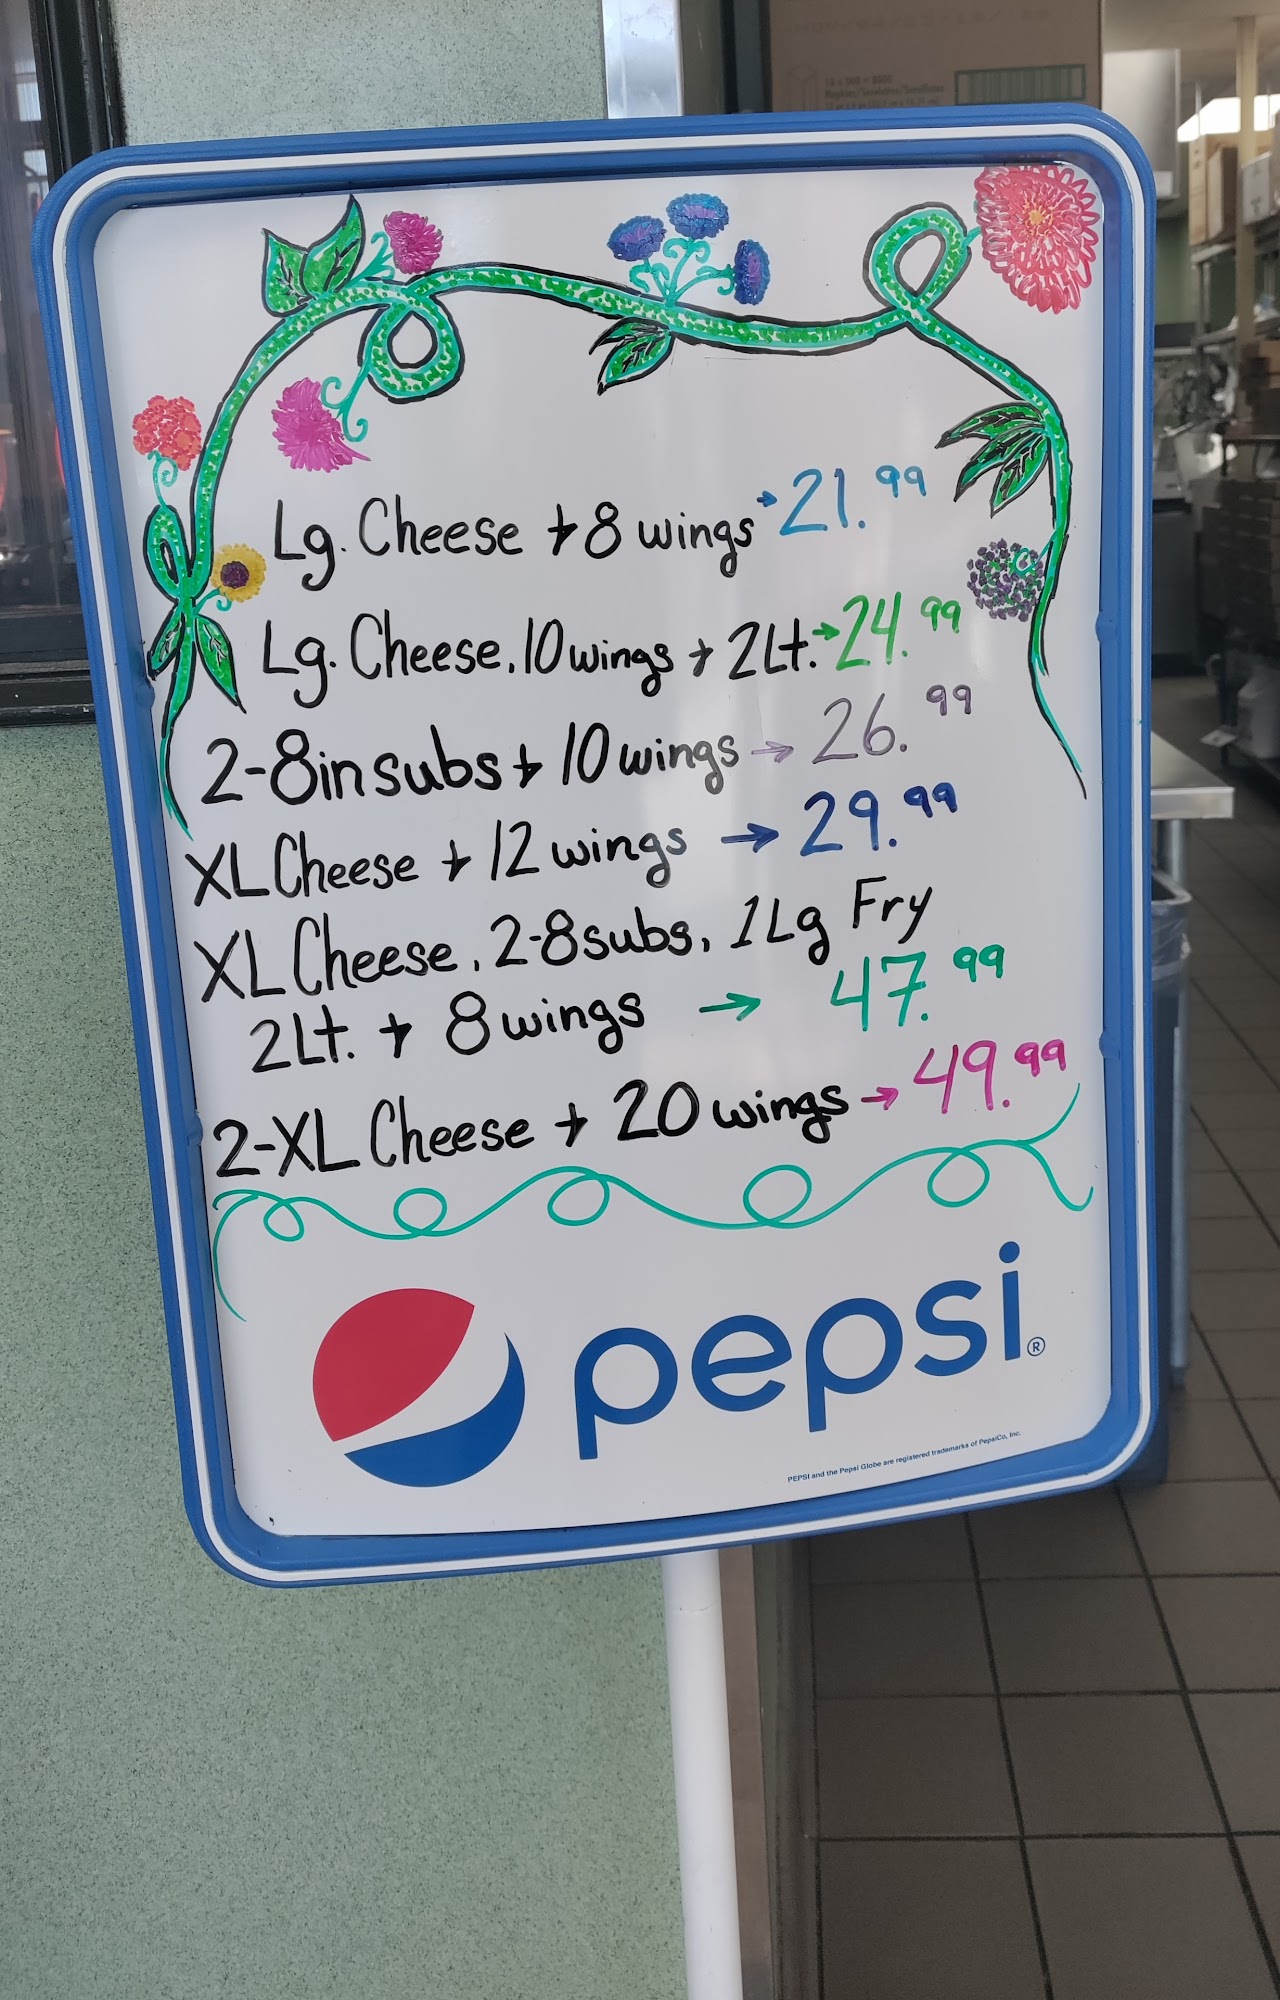 16 x 500 = 8000
Napkins/Servilletas/Serviettes
Lg. Cheese + 8 wings → 21.99
Lg. Cheese, 10 wings + 2Lt. → 24.99
2-8in subs + 10 wings → 26.99
XL Cheese + 12 wings → 29.99
XL Cheese, 2-8 subs, 1 Lg Fry
2Lt. + 8 wings → 47.99
2-XL Cheese + 20 wings → 49.99
pepsi®
PEPSI and the Pepsi Globe are registered trademarks of PepsiCo, Inc.